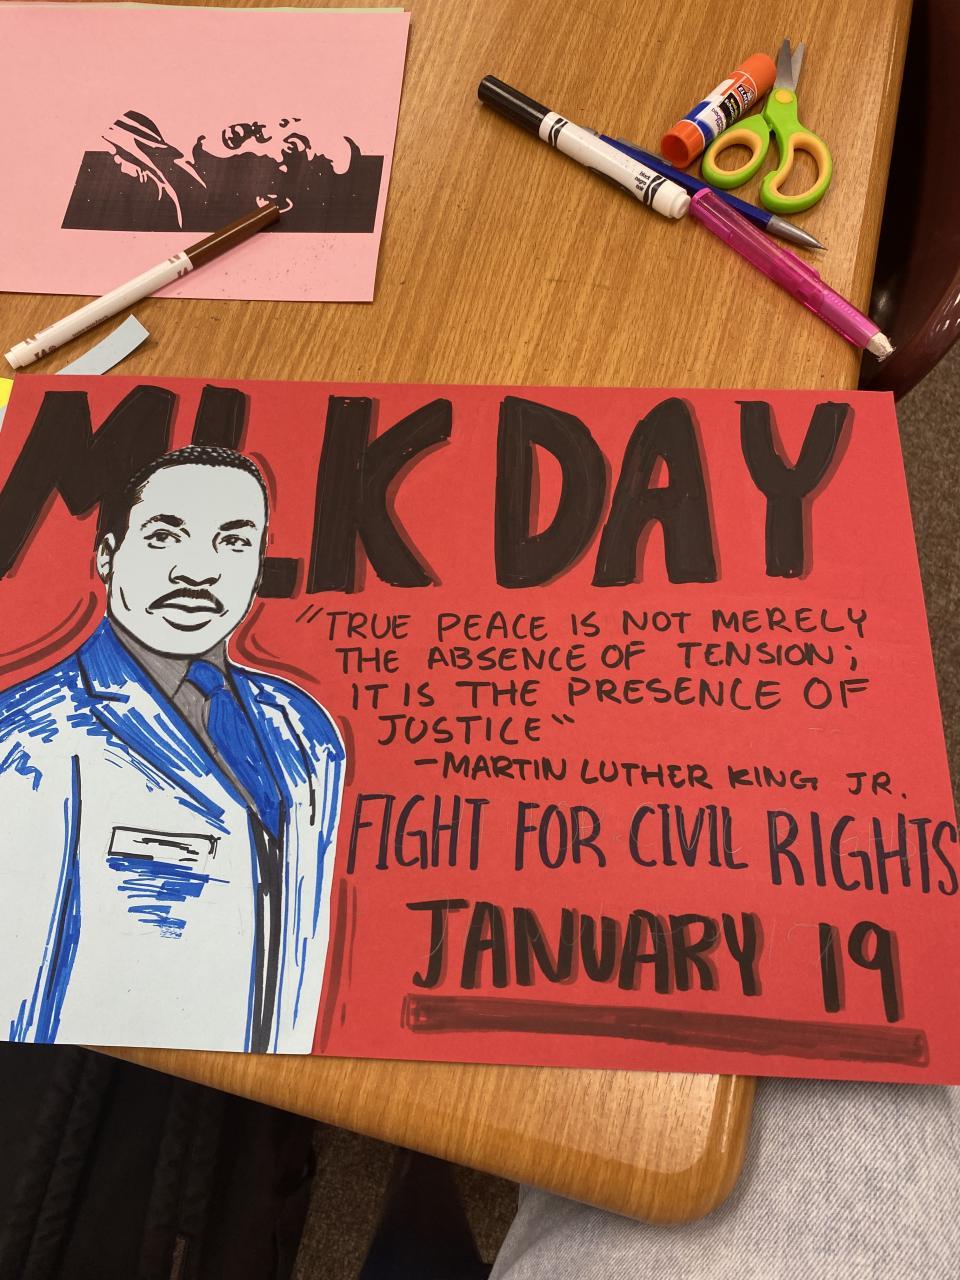 ELMER'S
black
negro
noir
MLK DAY
"TRUE PEACE IS NOT MERELY
THE ABSENCE OF TENSION;
IT IS THE PRESENCE OF
JUSTICE"
-MARTIN LUTHER KING JR.
FIGHT FOR CIVIL RIGHTS
JANUARY 19